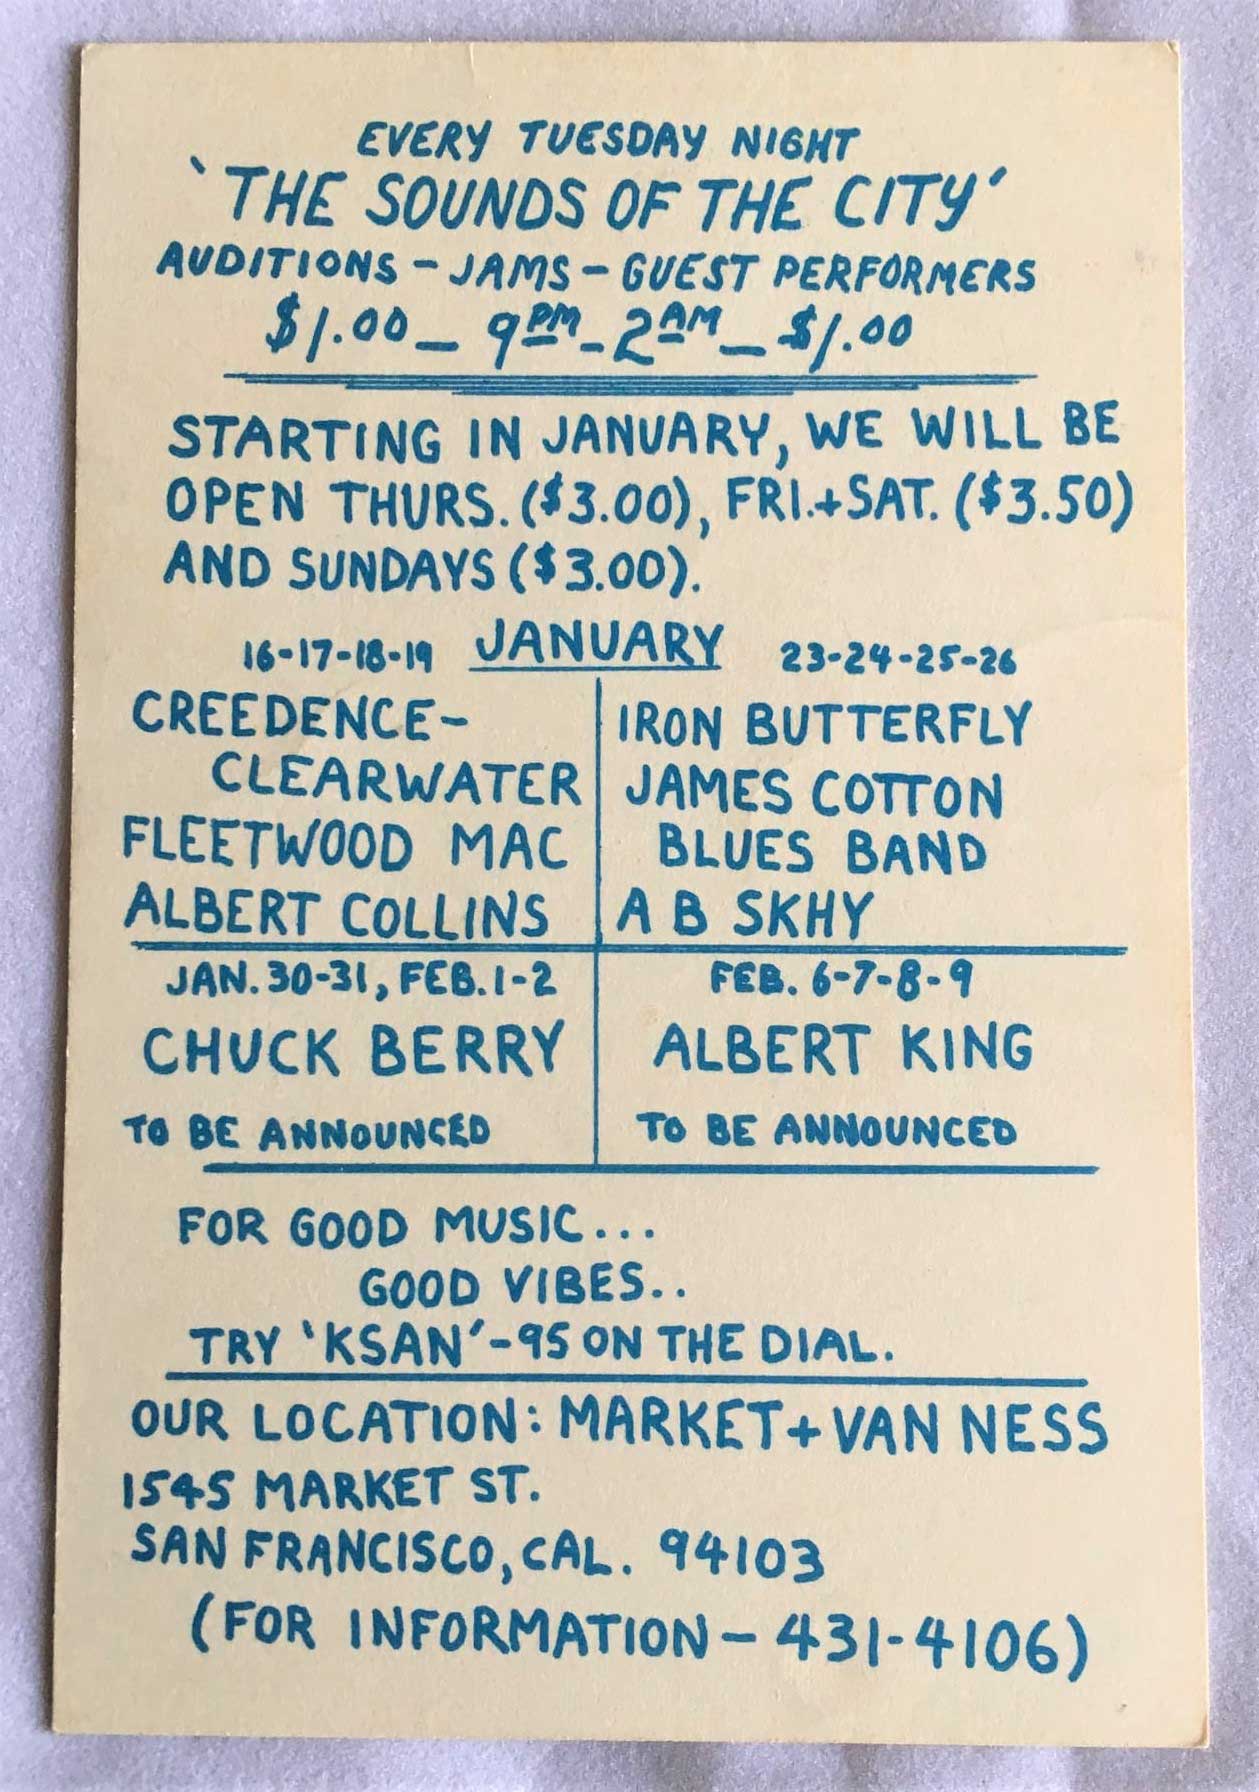 EVERY TUESDAY NIGHT
'THE SOUNDS OF THE CITY'
AUDITIONS - JAMS - GUEST PERFORMERS
$1.00 - 9PM - 2AM - $1.00
STARTING IN JANUARY, WE WILL BE
OPEN THURS. ($3.00), FRI.+SAT. ($3.50)
AND SUNDAYS ($3.00).
JANUARY
16-17-18-19
CREEDENCE-
CLEARWATER
FLEETWOOD MAC
ALBERT COLLINS
23-24-25-26
IRON BUTTERFLY
JAMES COTTON
BLUES BAND
A B SKHY
JAN. 30-31, FEB. 1-2
CHUCK BERRY
TO BE ANNOUNCED
FEB. 6-7-8-9
ALBERT KING
TO BE ANNOUNCED
FOR GOOD MUSIC...
GOOD VIBES..
TRY 'KSAN'-95 ON THE DIAL.
OUR LOCATION: MARKET + VAN NESS
1545 MARKET ST.
SAN FRANCISCO, CAL. 94103
(FOR INFORMATION - 431-4106)